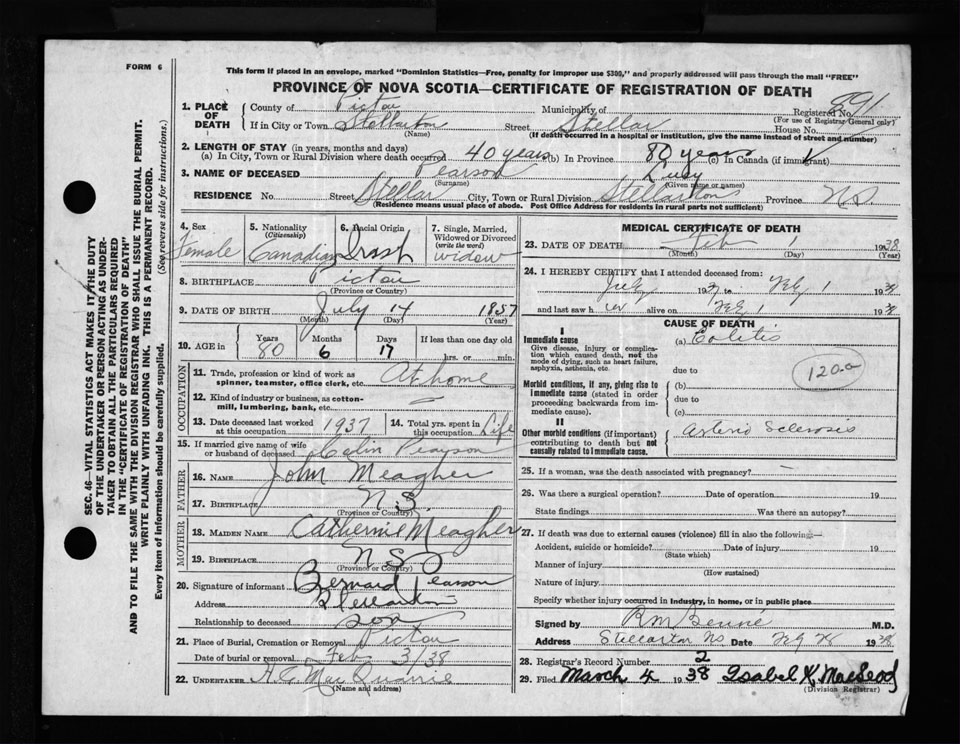 FORM 6
This form if placed in an envelope, marked "Dominion Statistics—Free, penalty for improper use $300," and properly addressed will pass through the mail "FREE"
PROVINCE OF NOVA SCOTIA—CERTIFICATE OF REGISTRATION OF DEATH
1. PLACE OF DEATH County of Pictou Municipality of Registered No. 891
(For use of Registrar General only)
If in City or Town Stellarton Street Stellar House No.
(Name) (If death occurred in a hospital or institution, give the name instead of street and number)
2. LENGTH OF STAY (in years, months and days)
(a) In City, Town or Rural Division where death occurred 40 years (b) In Province 80 years (c) In Canada (if immigrant)
3. NAME OF DECEASED Pearson Lucy
(Surname) (Given name or names)
RESIDENCE No. Street Stellar City, Town or Rural Division Stellarton Province NS
(Residence means usual place of abode. Post Office Address for residents in rural parts not sufficient)
4. Sex Female
5. Nationality (Citizenship) Canadian
6. Racial Origin Irish
7. Single, Married, Widowed or Divorced (write the word) widow
8. BIRTHPLACE Pictou
(Province or Country)
9. DATE OF BIRTH July 14 1857
(Month) (Day) (Year)
10. AGE in Years 80 Months 6 Days 17 If less than one day old
hrs. or min.
OCCUPATION
11. Trade, profession or kind of work as spinner, teamster, office clerk, etc. At home
12. Kind of industry or business, as cotton-mill, lumbering, bank, etc.
13. Date deceased last worked at this occupation 1937
14. Total yrs. spent in this occupation Life
15. If married give name of wife or husband of deceased Colin Pearson
FATHER
16. NAME John Meagher
17. BIRTHPLACE N S.
(Province or Country)
MOTHER
18. MAIDEN NAME Catherine Meagher
19. BIRTHPLACE N S
(Province or Country)
20. Signature of informant Bernard Pearson
Address Stellarton
Relationship to deceased son
21. Place of Burial, Cremation or Removal Pictou
Date of burial or removal Feb 3/38
22. UNDERTAKER MacQuarrie
(Name and address)
MEDICAL CERTIFICATE OF DEATH
23. DATE OF DEATH Feb 1 1938
(Month) (Day) (Year)
24. I HEREBY CERTIFY that I attended deceased from:
July 1937 to Feb 1 1938
and last saw her alive on Feb 1 1938
CAUSE OF DEATH
I
Immediate cause
Give disease, injury or complication which caused death, not the mode of dying, such as heart failure, asphyxia, asthenia, etc.
(a) Colitis
due to
120-a
Morbid conditions, if any, giving rise to immediate cause (stated in order proceeding backwards from immediate cause).
(b)
due to
(c)
II
Other morbid conditions (if important) contributing to death but not causally related to immediate cause.
Arterio Sclerosis
25. If a woman, was the death associated with pregnancy?
26. Was there a surgical operation? Date of operation 19
State findings Was there an autopsy?
27. If death was due to external causes (violence) fill in also the following:—
Accident, suicide or homicide? Date of injury 19
(State which)
Manner of injury
(How sustained)
Nature of injury
Specify whether injury occurred in industry, in home, or in public place
Signed by M.D.
Address Stellarton NS Date Feb 1938
28. Registrar's Record Number 2
29. Filed March 4 1938 Isabel K. MacLeod
(Division Registrar)
SEC. 46—VITAL STATISTICS ACT MAKES IT THE DUTY
OF THE UNDERTAKER OR PERSON ACTING AS UNDER-
TAKER TO OBTAIN ALL THE PARTICULARS REQUIRED
IN THE "CERTIFICATE OF REGISTRATION OF DEATH"
AND TO FILE THE SAME WITH THE DIVISION REGISTRAR WHO SHALL ISSUE THE BURIAL PERMIT.
WRITE PLAINLY WITH UNFADING INK. THIS IS A PERMANENT RECORD.
Every item of information should be carefully supplied. (See reverse side for instructions.)